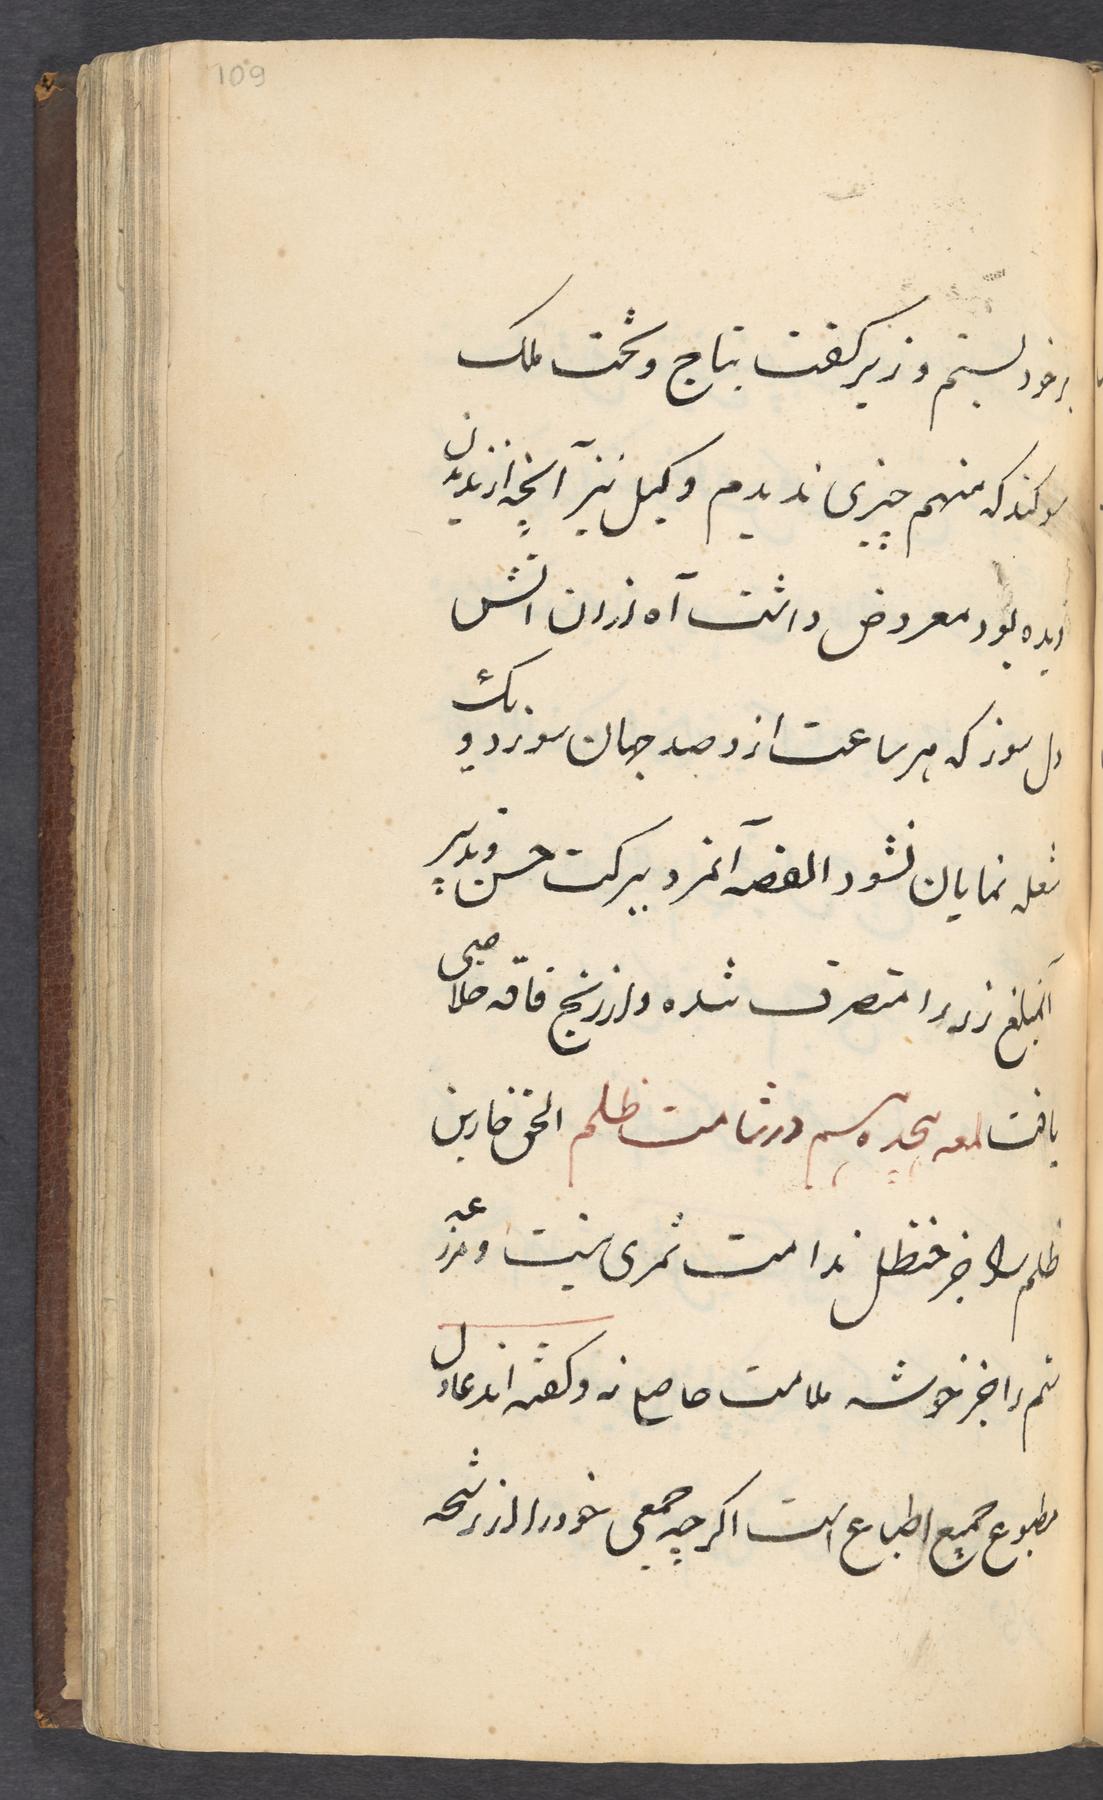 109
بر خود بستم وزیر کفت بتاج و تخت ملک
سوکند که منهم چیزی ندیدم وکیل نیز آنچه از ندیدن
دیده بود معروض داشت آه ازان اتش
دل سوز که هر ساعت ازو صد جهان سوزد و یک
شعله نمایان نشود القصه آنمرد ببرکت حسن تدبیر
آنمبلغ زر را متصرف شده و از رنج فاقه خلاصی
یافت لمعه هجدهم در شامت ظلم الحق خاربن
ظلم را جز حنظل ندامت ثمری نیست و مزرعه
ستم را جز خوشه ملامت حاصل نه و کفته اند عادل
مطبوع جمیع اطباع است اکرچه جمعی خود را از رشحه